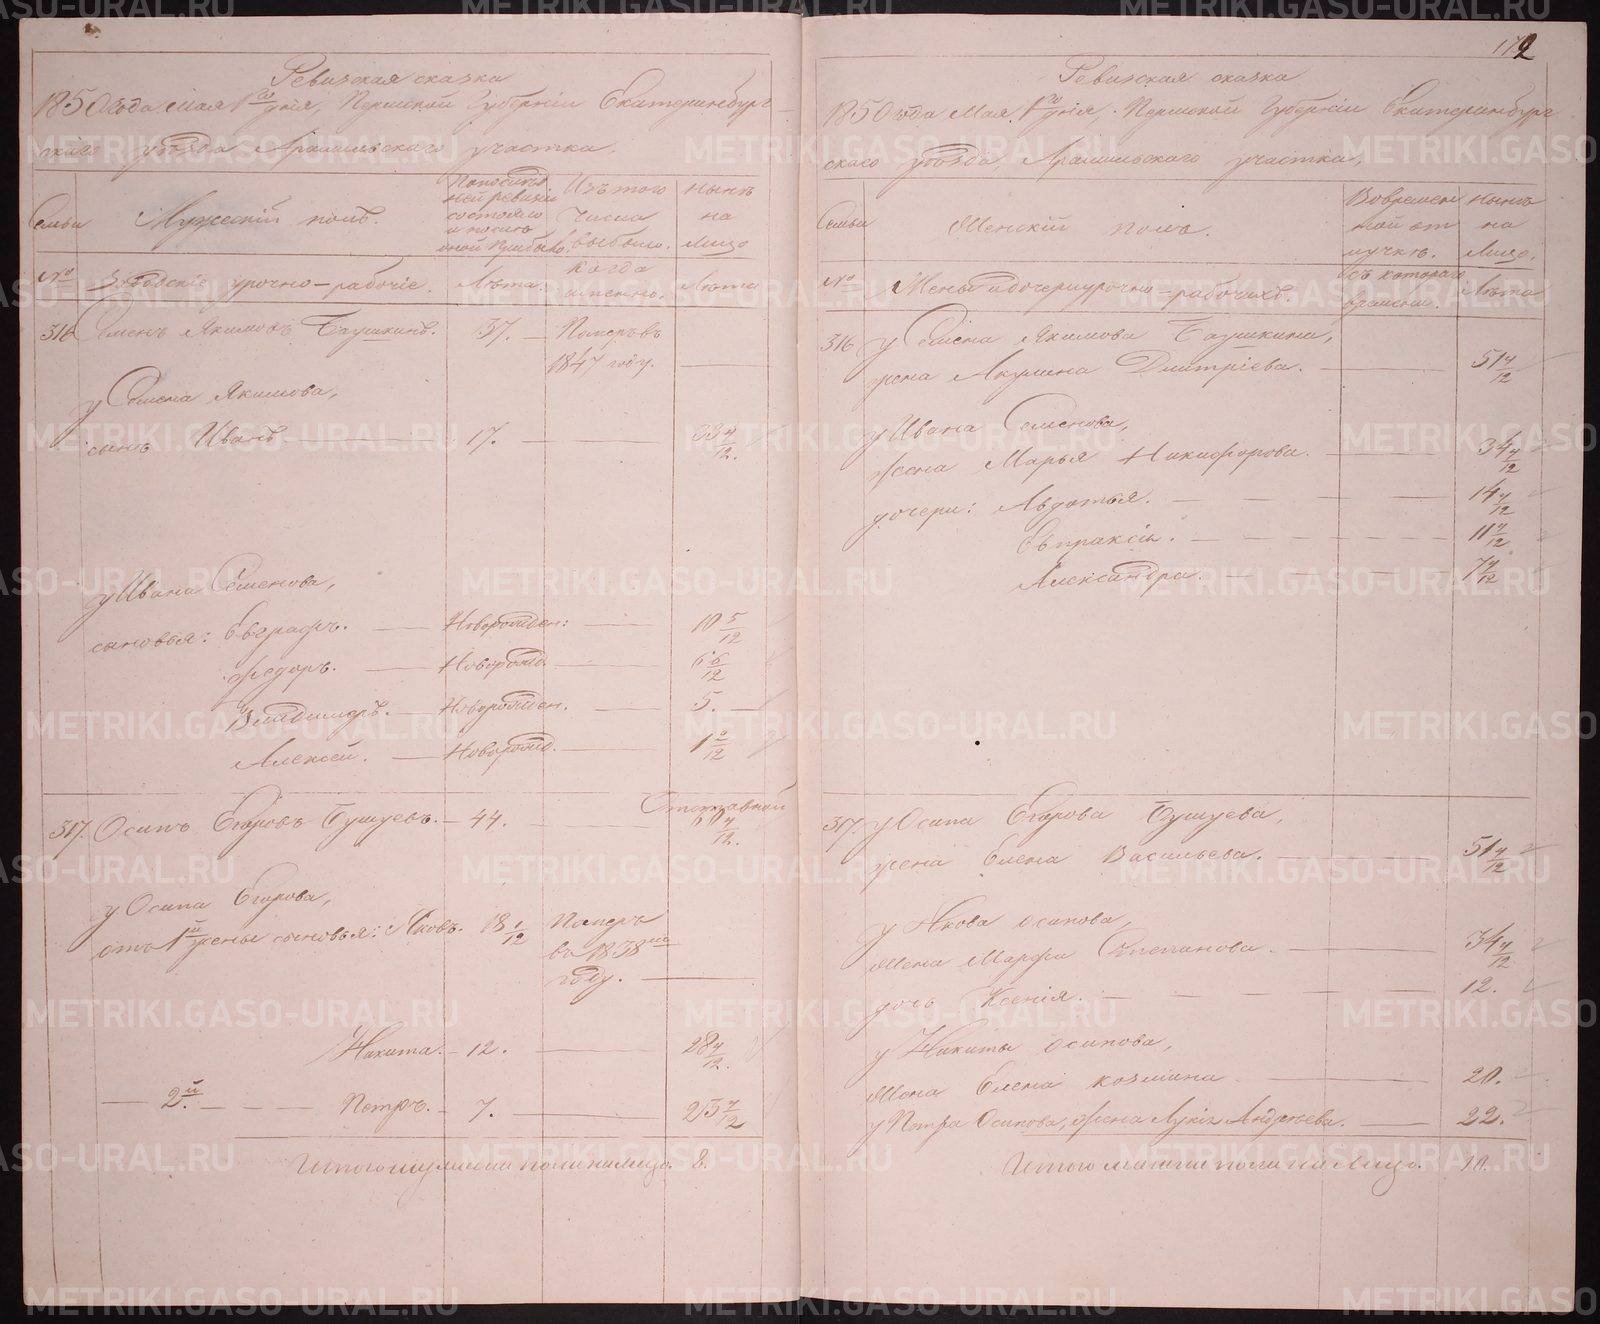 Ревизская сказка
1850 года Мая 1го дня, Пермской Губернiи Екатеринбург
скаго уѣзда Арамильскаго участка.
Семьи
Мужескiй полъ.
По послѣд
ней ревизiи
состояло
и послѣ
оной прибыло.
Изъ того
числа
выбыло.
Нынѣ
на
лицо
№
Заводскiе урочно-рабочiе.
Лѣта.
когда
именно.
Лѣта
316 Семенъ Якимовъ Баушкинъ. 37. Померъ въ
1847 году.
у Семена Якимова,
сынъ Иванъ 17. 33 4/12.
у Ивана Семенова,
сыновья: Евграфъ. Новорожден: 10 5/12
Федоръ. Новорожд. 6 6/12
Владимиръ. Новорожден. 5.
Алексей. Новорожд. 1 2/12
317. Осипъ Егоровъ Бушуевъ. 44. Отставной
60 4/12.
у Осипа Егорова,
отъ 1й жены сыновья: Яковъ. 18 1/12 Померъ
въ 1838мъ
году.
Никита. 12. 28 4/12.
2й. Петръ. 7. 23 4/12
Итого мужеска пола на лицо. 8.
172
Ревизская сказка
1850 года Мая 1го дня, Пермской Губернiи Екатеринбург
скаго уѣзда, Арамильскаго участка,
Семьи
Женскiй полъ.
Во времен
ной от
лучкѣ.
Нынѣ
на
Лицо.
№
Жены и дочери урочно-рабочихъ.
съ котораго
времени.
Лѣта
316 у Семена Якимова Баушкина,
жена Акулина Дмитрiева. 51 4/12
у Ивана Семенова,
жена Марья Никифорова. 34 4/12
дочери: Авдотья. 14 4/12
Евпраксiя. 11 4/12
Александра. 7 4/12
317. у Осипа Егорова Бушуева,
жена Елена Васильева. 51 4/12
у Якова Осипова,
жена Марфа Степанова. 34 4/12
дочь Ксенiя. 12.
у Никиты Осипова,
жена Елена Козмина 20.
у Петра Осипова, жена Лукiя Андреева. 22.
Итого женска пола на Лицо. 10.
METRIKI.GASO-URAL.RU